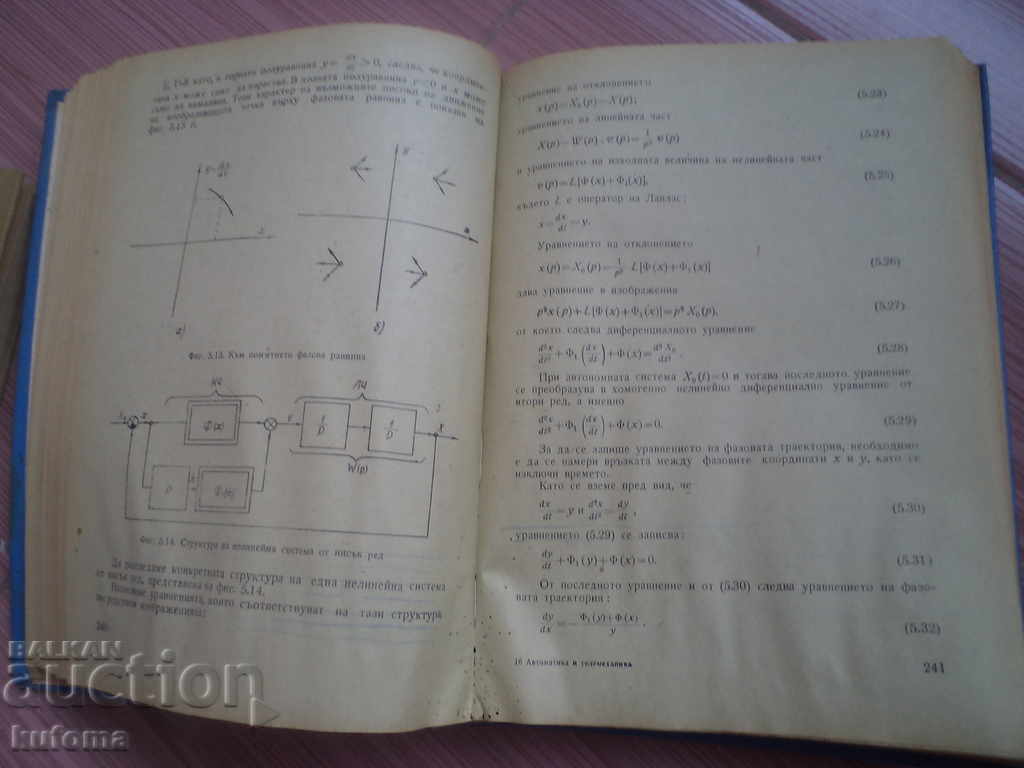 като, в горната полуравнина y= dx/dt >0, следва, че координа-
тата x може само да нараства. В долната полуравнина y<0 и x може
само да намалява. Този характер на възможните посоки на движение
на изобразяващата точка върху фазовата равнина е показан на
фиг. 5.13 б.
а)
б)
Фиг. 5.13. Към понятието фазова равнина
НЧ
ЛЧ
Ф(x)
D
W(p)
Фиг. 5.14. Структура на нелинейна система от нисък ред
Да разгледаме конкретната структура на една нелинейна система
от нисък ред, представена на фиг. 5.14.
уравненията, които съответствуват на тази структура
уравнение на отклонението
x(p)=X₀(p)−X(p); (5.23)
уравнението на линейната част
X(p)=W(p).v(p)= 1/p² v(p) (5.24)
и уравнението на изходната величина на нелинейната част
v(p)=L[Ф(x)+Ф₁(x)], (5.25)
където L е оператор на Лаплас;
x= dx/dt =y.
Уравнението на отклонението
x(p)=X₀(p)= 1/p² L[Ф(x)+Ф₁(x)] (5.26)
дава уравнение в изображения
p²x(p)+L[Ф(x)+Ф₁(x)]=p² X₀(p), (5.27)
от което следва диференциалното уравнение
d²x/dt² +Ф₁(dx/dt)+Ф(x)= d²X₀/dt² . (5.28)
При автономната система X₀(t)=0 и тогава последното уравнение
се преобразува в хомогенно нелинейно диференциално уравнение от
втори ред, а именно
d²x/dt² +Ф₁(dx/dt)+Ф(x)=0. (5.29)
За да се запише уравнението на фазовата траектория, необходимо
е да се намери връзката между фазовите координати x и y, като се
изключи времето.
Като се вземе пред вид, че
dx/dt =y и d²x/dt² = dy/dt , (5.30)
уравнението (5.29) се записва:
dy/dt +Ф₁(y)+Ф(x)=0. (5.31)
От последното уравнение и от (5.30) следва уравнението на фазо-
вата траектория:
dy/dx =− Ф₁(y)+Ф(x)/y . (5.32)
16 Автоматика и телемеханика
241
BALKAN
auction
kufoma